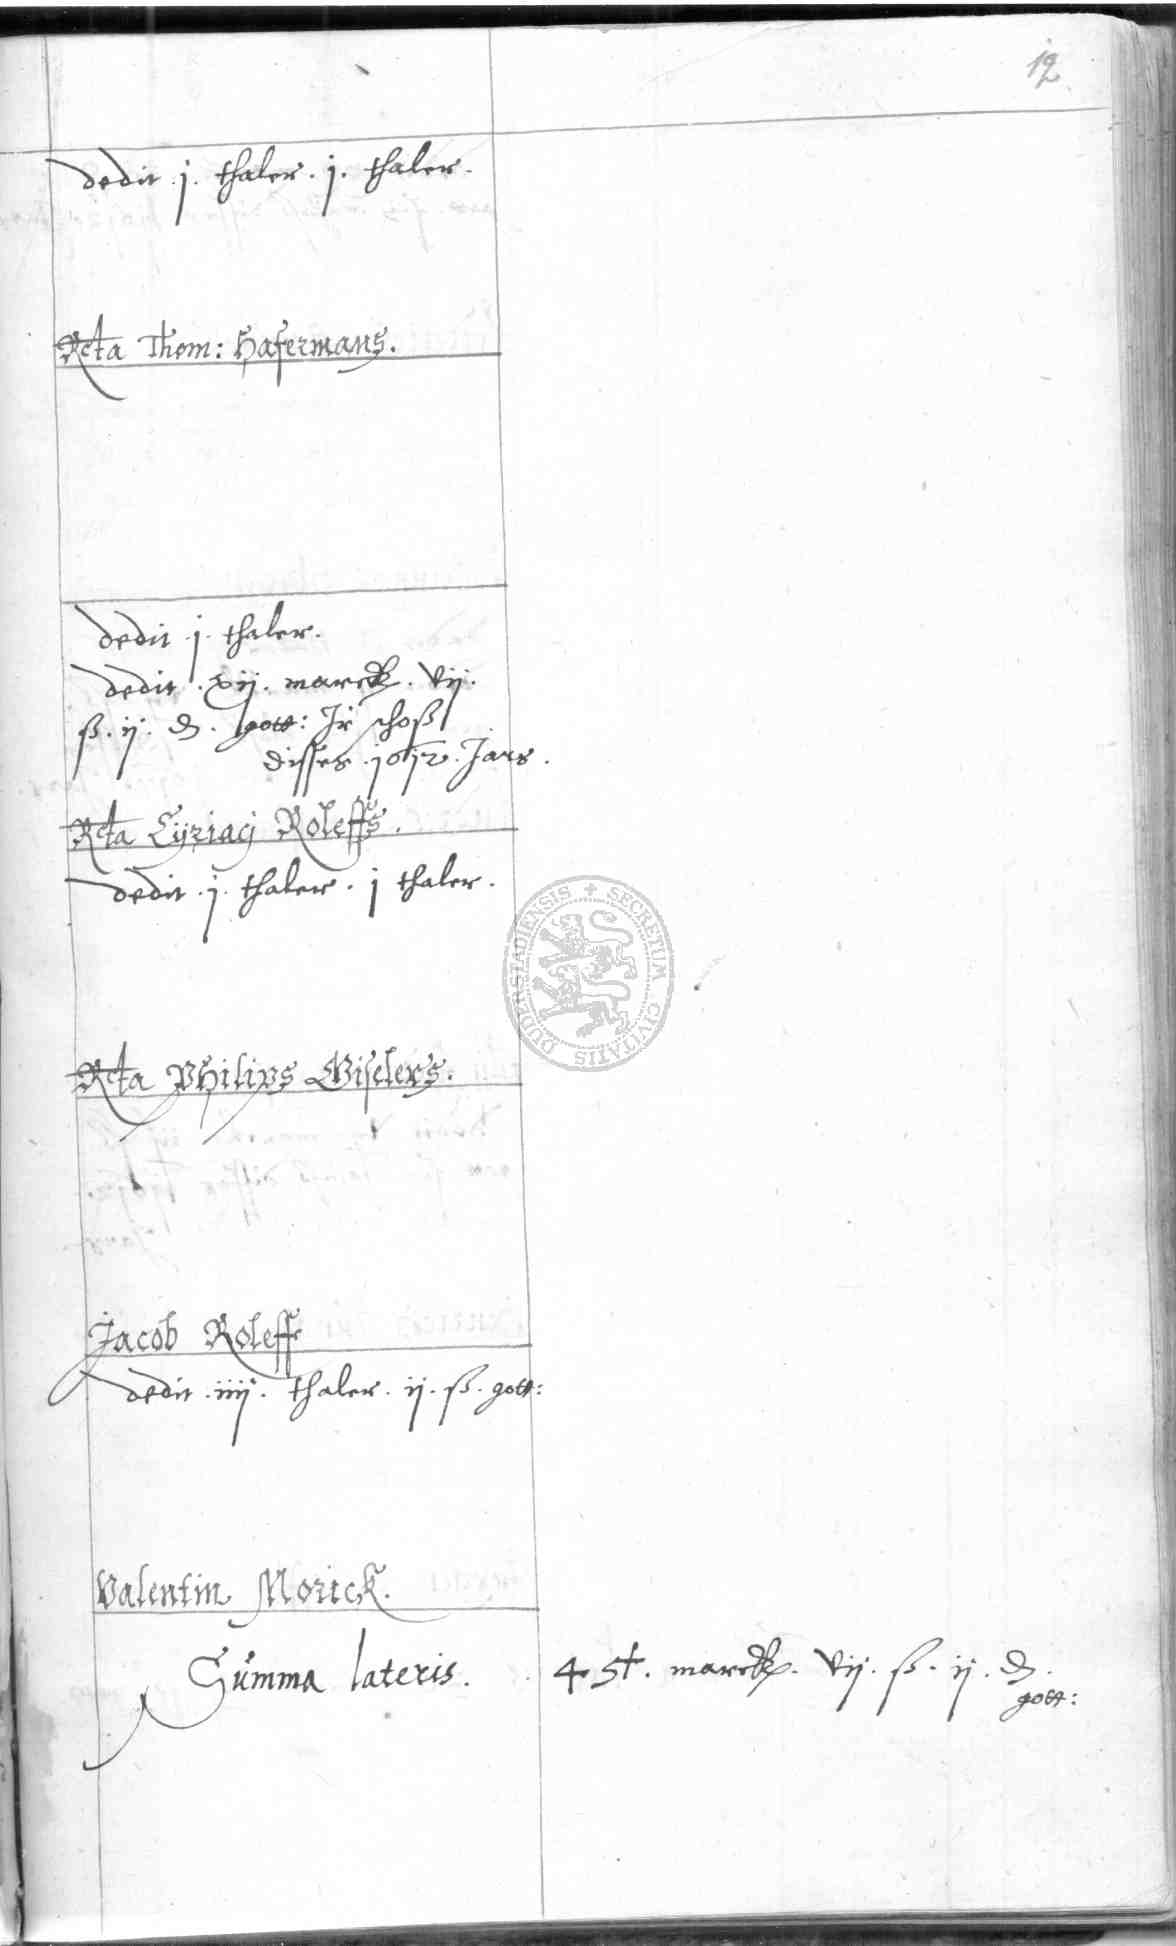 12
dedit .j. thaler . j. thaler .
Rcta Thom: Hafermans.
dedit .j. thaler.
dedit . xij. marck . vij.
ß. ij. ₰. gott: Jr schoß
disses .1612. Jars .
Rcta Cyriacj Roleffs .
dedit .j. thaler . j thaler .
SECRETUM CIVITATIS DUDERSTADIENSIS
Rcta Philips Giselers .
Jacob Roleff
dedit .iiij. thaler . ij . ß . gott:
Valentin Morick .
Summa lateris . marck . vij . ß . ij . ₰ .
gott: